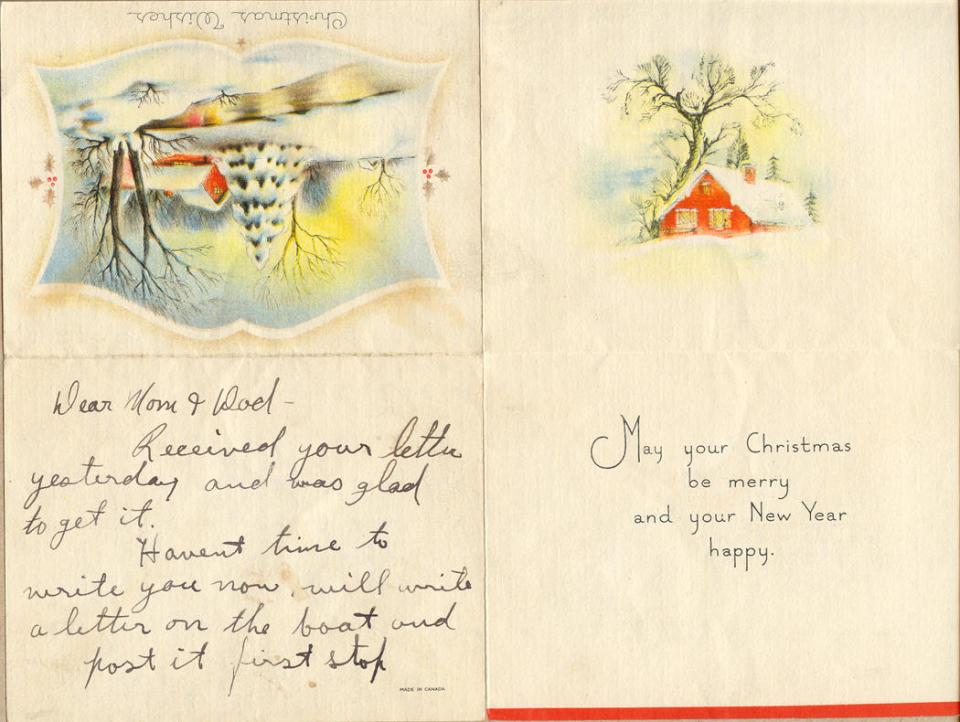 Christmas Wishes
Dear Mom & Dad -
Received your letter
yesterday and was glad
to get it.
Havent time to
write you now, will write
a letter on the boat and
post it first stop
MADE IN CANADA
May your Christmas
be merry
and your New Year
happy.